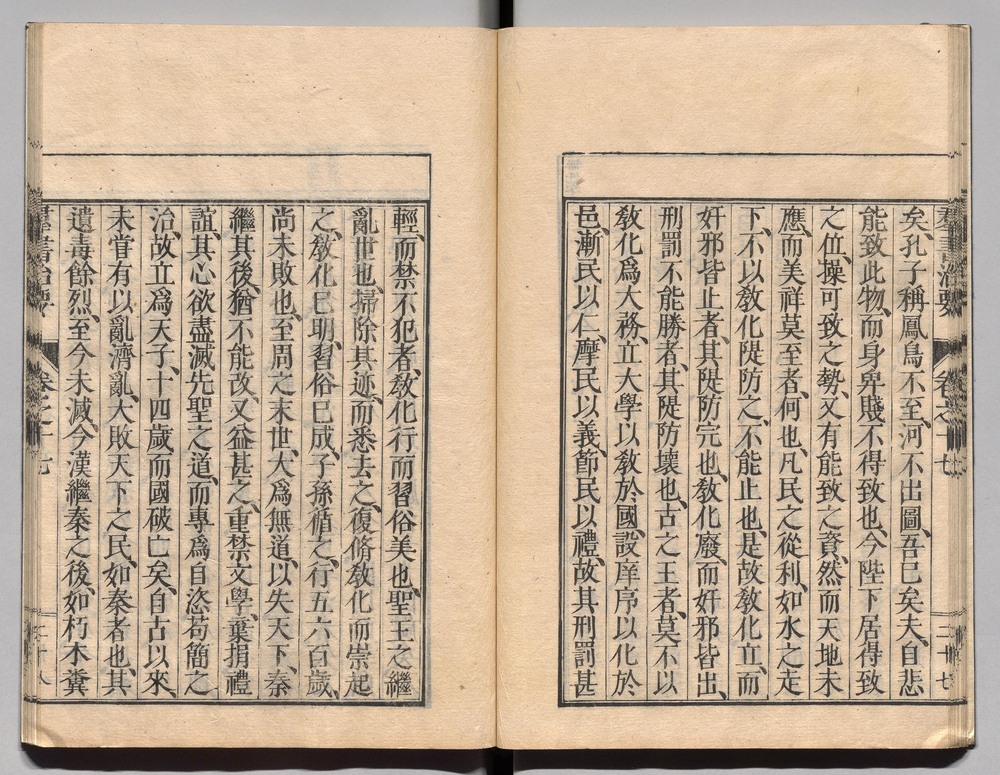 羣書治要 卷之十七 二十七
矣、孔子稱鳳鳥不至、河不出圖、吾已矣夫、自悲
能致此物、而身卑賤不得致也、今陛下居得致
之位、操可致之勢、又有能致之資、然而天地未
應、而美祥莫至者、何也、凡民之從利、如水之走
下、不以敎化隄防之、不能止也、是故敎化立、而
奸邪皆止者、其隄防完也、敎化廢、而奸邪皆出、
刑罰不能勝者、其隄防壞也、古之王者、莫不以
敎化爲大務、立大學以敎於國、設庠序以化於
邑、漸民以仁、摩民以義、節民以禮、故其刑罰甚
輕、而禁不犯者、敎化行而習俗美也、聖王之繼
亂世也、掃除其迹、而悉去之、復脩敎化而崇起
之、敎化已明、習俗已成、子孫循之、行五六百歲、
尚未敗也、至周之末世、大爲無道、以失天下、秦
繼其後、猶不能改、又益甚之、重禁文學、棄捐禮
誼、其心欲盡滅先聖之道、而專爲自恣苟簡之
治、故立爲天子、十四歲、而國破亡矣、自古以來、
未甞有以亂濟亂、大敗天下之民、如秦者也、其
遺毒餘烈、至今未滅、今漢繼秦之後、如朽木糞
羣書治要 卷之十七 二十八